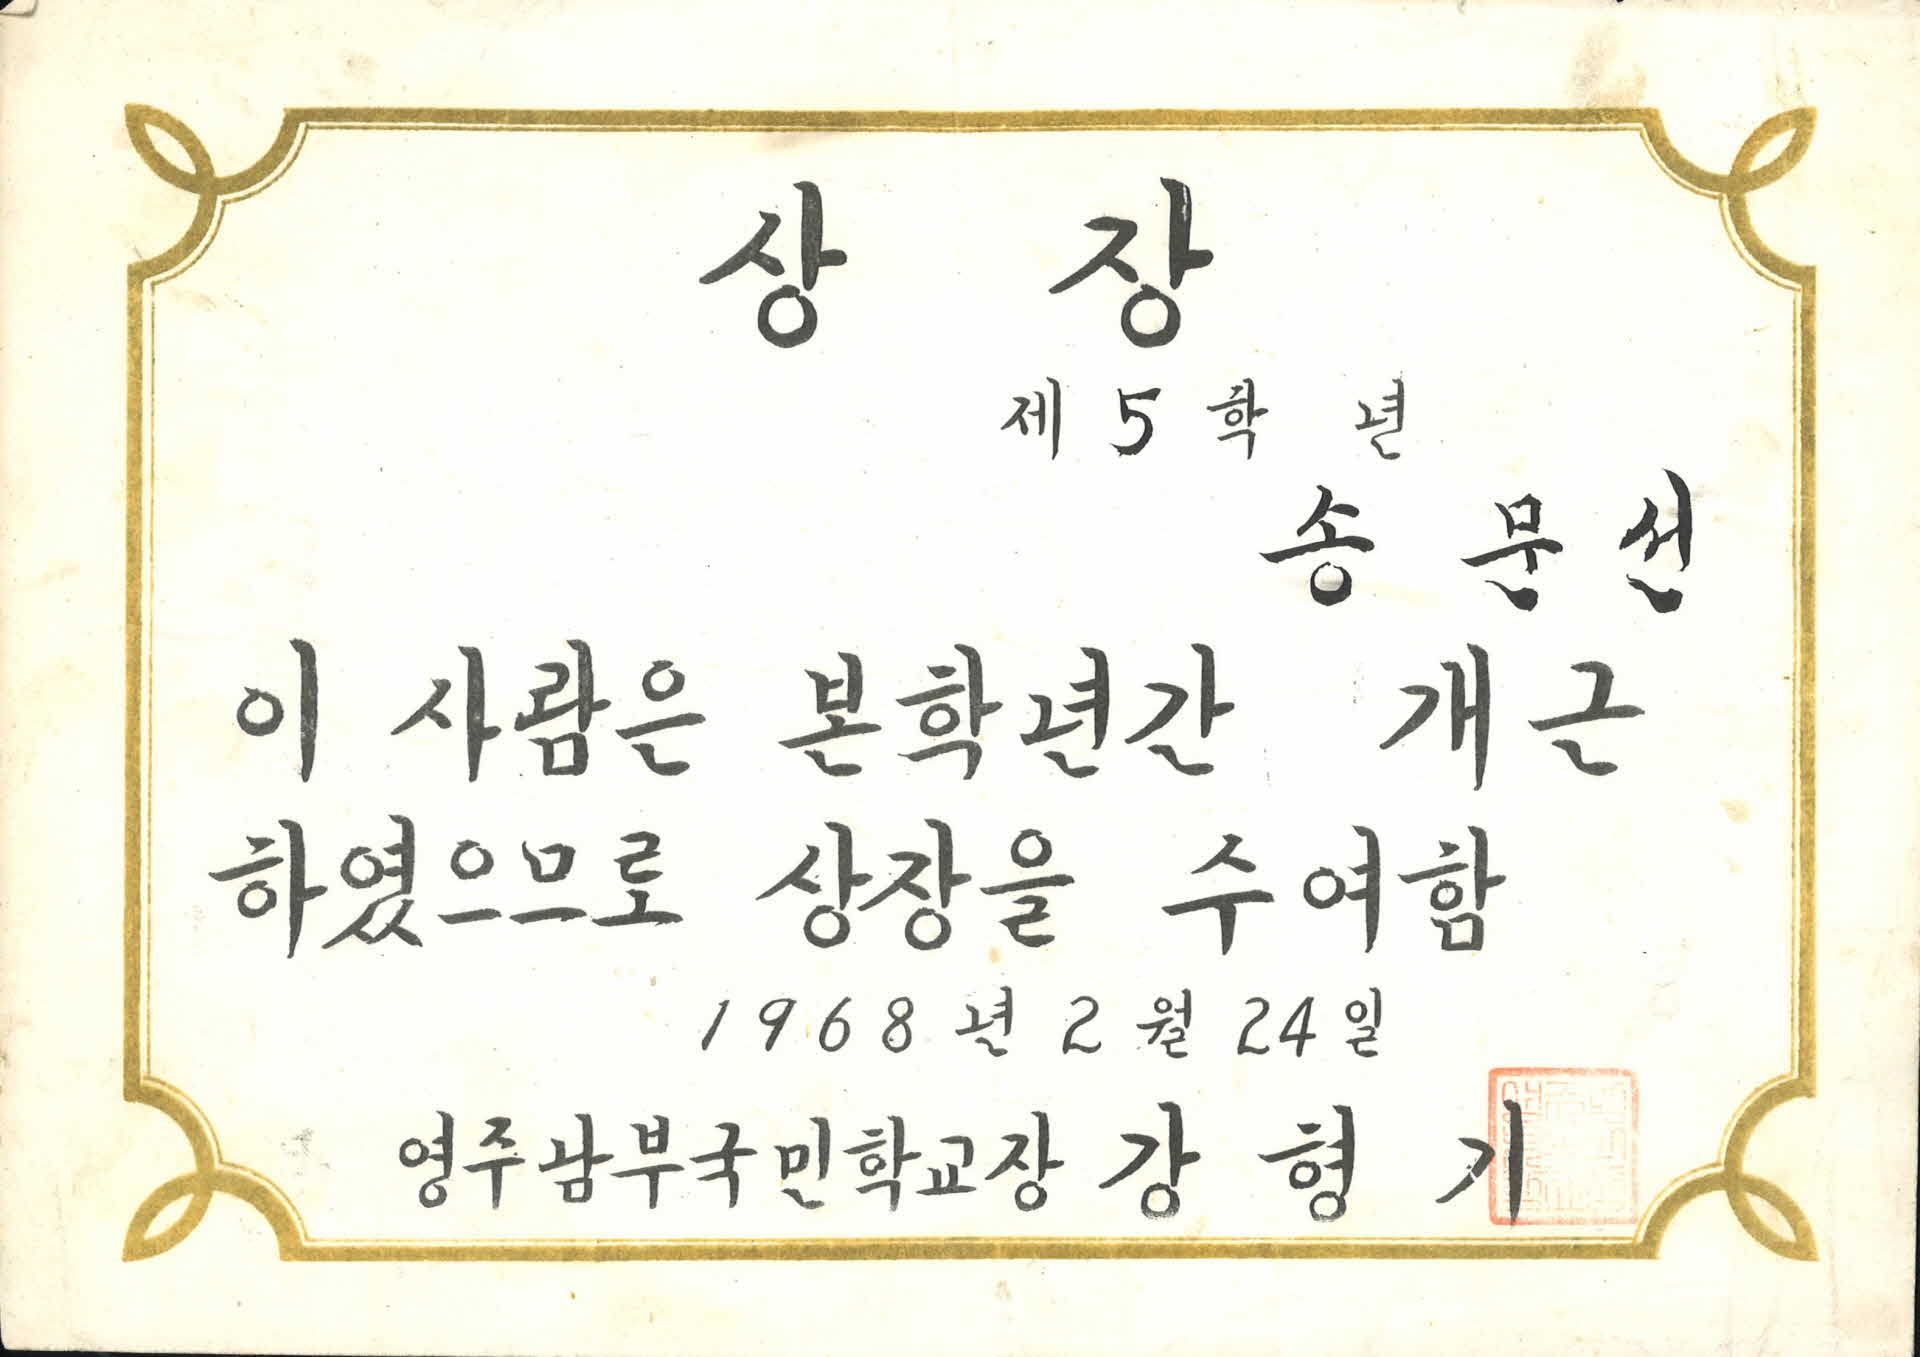 상 장
제 5 학 년
송 문 선
이 사람은 본학년간 개근
하였으므로 상장을 수여함
1968년 2월 24일
영주남부국민학교장 강 형 기